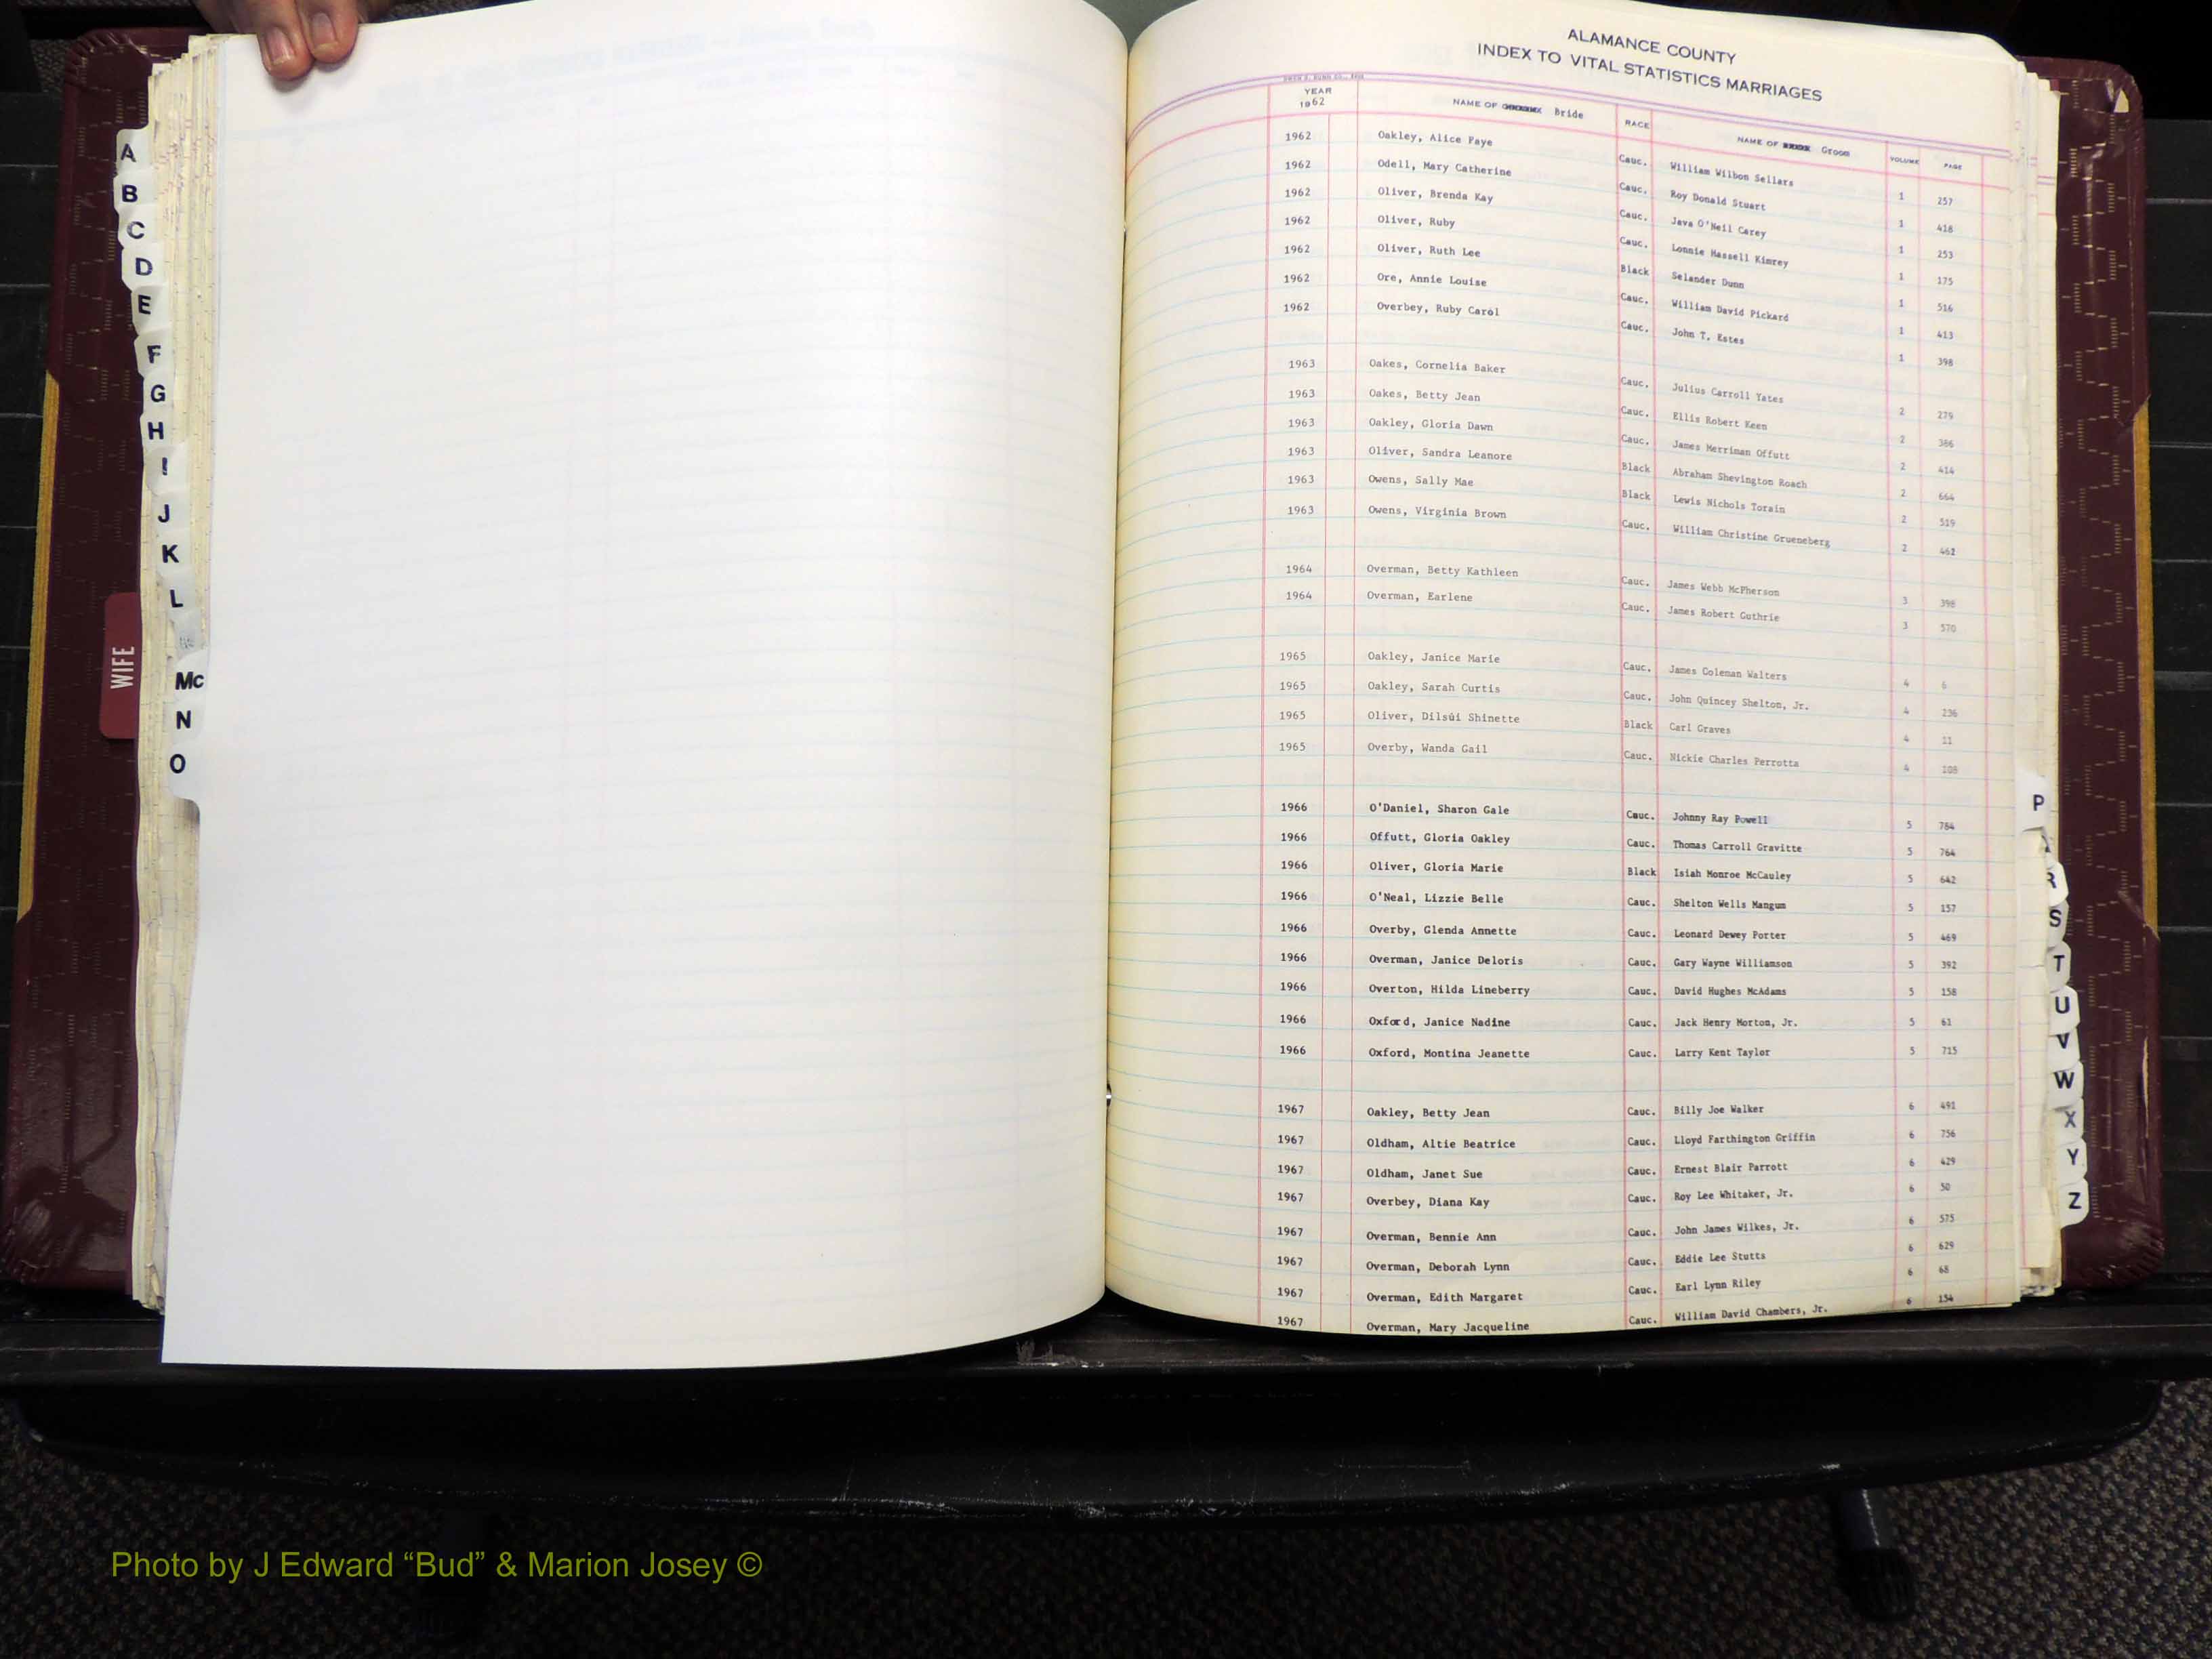 ALAMANCE COUNTY
INDEX TO VITAL STATISTICS MARRIAGES
YEAR 1962 NAME OF Bride RACE NAME OF Groom VOLUME PAGE
1962 Oakley, Alice Faye Cauc. William Wilbon Sellars 1 257
1962 Odell, Mary Catherine Cauc. Roy Donald Stuart 1 418
1962 Oliver, Brenda Kay Cauc. Java O'Neil Carey 1 253
1962 Oliver, Ruby Cauc. Lonnie Hassell Kimrey 1 175
1962 Oliver, Ruth Lee Black Selander Dunn 1 516
1962 Ore, Annie Louise Cauc. William David Pickard 1 413
1962 Overbey, Ruby Carol Cauc. John T. Estes 1 398
1963 Oakes, Cornelia Baker Cauc. Julius Carroll Yates 2 279
1963 Oakes, Betty Jean Cauc. Ellis Robert Keen 2 386
1963 Oakley, Gloria Dawn Cauc. James Merriman Offutt 2 414
1963 Oliver, Sandra Leanore Black Abraham Shevington Roach 2 664
1963 Owens, Sally Mae Black Lewis Nichols Torain 2 519
1963 Owens, Virginia Brown Cauc. William Christine Grueneberg 2 462
1964 Overman, Betty Kathleen Cauc. James Webb McPherson 3 398
1964 Overman, Earlene Cauc. James Robert Guthrie 3 570
1965 Oakley, Janice Marie Cauc. James Coleman Walters 4 6
1965 Oakley, Sarah Curtis Cauc. John Quincey Shelton, Jr. 4 236
1965 Oliver, Dilsui Shinette Black Carl Graves 4 11
1965 Overby, Wanda Gail Cauc. Nickie Charles Perrotta 4 108
1966 O'Daniel, Sharon Gale Cauc. Johnny Ray Powell 5 784
1966 Offutt, Gloria Oakley Cauc. Thomas Carroll Gravitte 5 764
1966 Oliver, Gloria Marie Black Isiah Monroe McCauley 5 642
1966 O'Neal, Lizzie Belle Cauc. Shelton Wells Mangum 5 157
1966 Overby, Glenda Annette Cauc. Leonard Dewey Porter 5 469
1966 Overman, Janice Deloris Cauc. Gary Wayne Williamson 5 392
1966 Overton, Hilda Lineberry Cauc. David Hughes McAdams 5 158
1966 Oxford, Janice Nadine Cauc. Jack Henry Morton, Jr. 5 61
1966 Oxford, Montina Jeanette Cauc. Larry Kent Taylor 5 715
1967 Oakley, Betty Jean Cauc. Billy Joe Walker 6 491
1967 Oldham, Altie Beatrice Cauc. Lloyd Farthington Griffin 6 756
1967 Oldham, Janet Sue Cauc. Ernest Blair Parrott 6 429
1967 Overbey, Diana Kay Cauc. Roy Lee Whitaker, Jr. 6 50
1967 Overman, Bennie Ann Cauc. John James Wilkes, Jr. 6 575
1967 Overman, Deborah Lynn Cauc. Eddie Lee Stutts 6 629
1967 Overman, Edith Margaret Cauc. Earl Lynn Riley 6 68
1967 Overman, Mary Jacqueline Cauc. William David Chambers, Jr. 6 154
A
B
C
D
E
F
G
H
I
J
K
L
Mc
N
O
WIFE
P
R
S
T
U
V
W
X
Y
Z
Photo by J Edward “Bud” & Marion Josey ©